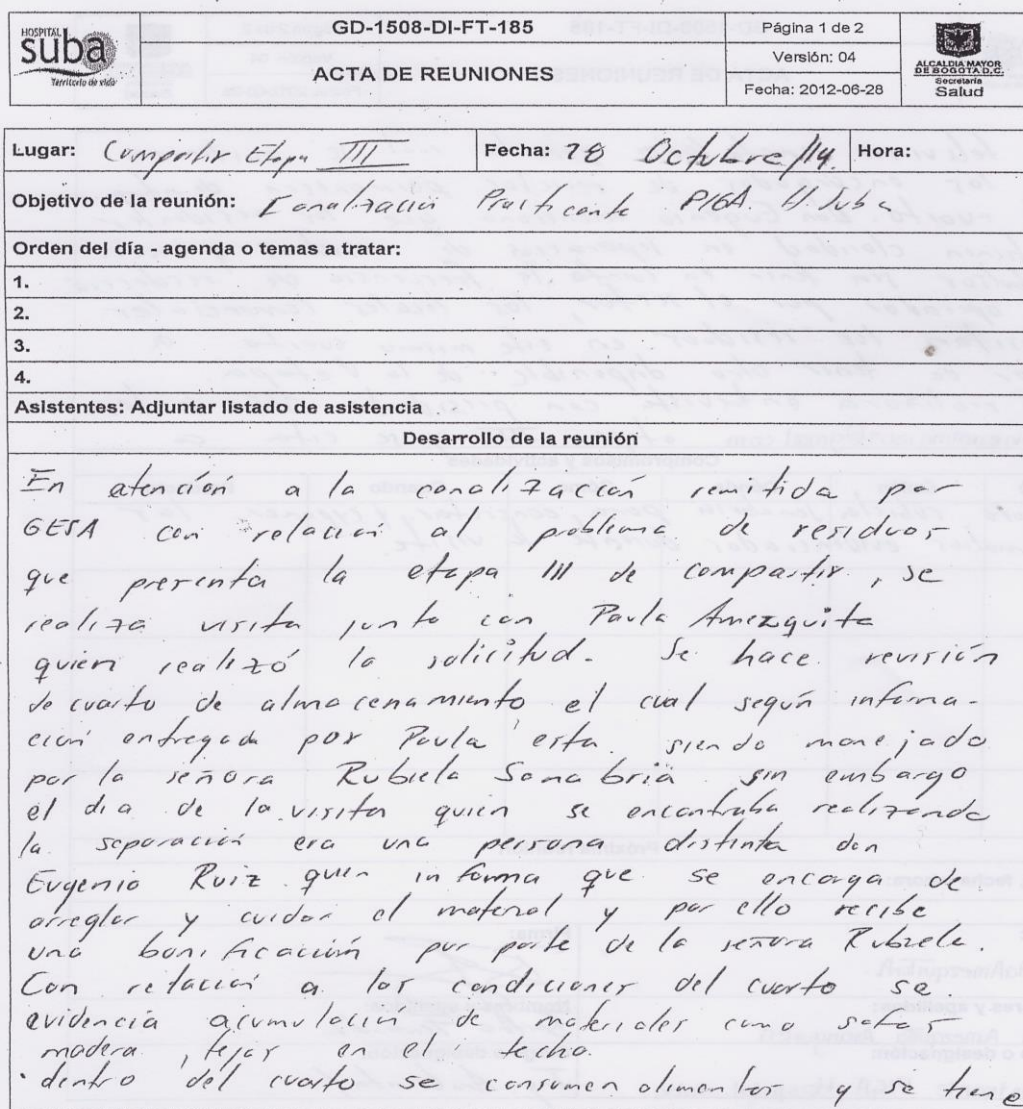 HOSPITAL
suba
Territorio de vida
GD-1508-DI-FT-185
ACTA DE REUNIONES
Página 1 de 2
Versión: 04
Fecha: 2012-06-28
ALCALDIA MAYOR
DE BOGOTA D.C.
Secretaría
Salud
Lugar: Compartir Etapa III Fecha: 28 Octubre/14 Hora:
Objetivo de la reunión: Canalización Practicante PIGA H. Suba
Orden del día - agenda o temas a tratar:
1.
2.
3.
4.
Asistentes: Adjuntar listado de asistencia
Desarrollo de la reunión
En atención a la canalización remitida por
GESA con relación al problema de residuos
que presenta la etapa III de compartir, se
realiza visita junto con Paula Amezquita
quien realizó la solicitud. Se hace revisión
de cuarto de almacenamiento el cual según informa-
ción entregada por Paula esta siendo manejado
por la señora Rubiela Sanabria sin embargo
el dia de la visita quien se encontraba realizando
la separación era una persona distinta don
Eugenio Ruiz quien informa que se encarga de
arreglar y cuidar el material y por ello recibe
una bonificación por parte de la señora Rubiela.
Con relación a las condiciones del cuarto se
evidencia acumulación de materiales como sofas
madera, tejas en el techo.
dentro del cuarto se consumen alimentos y se tiene